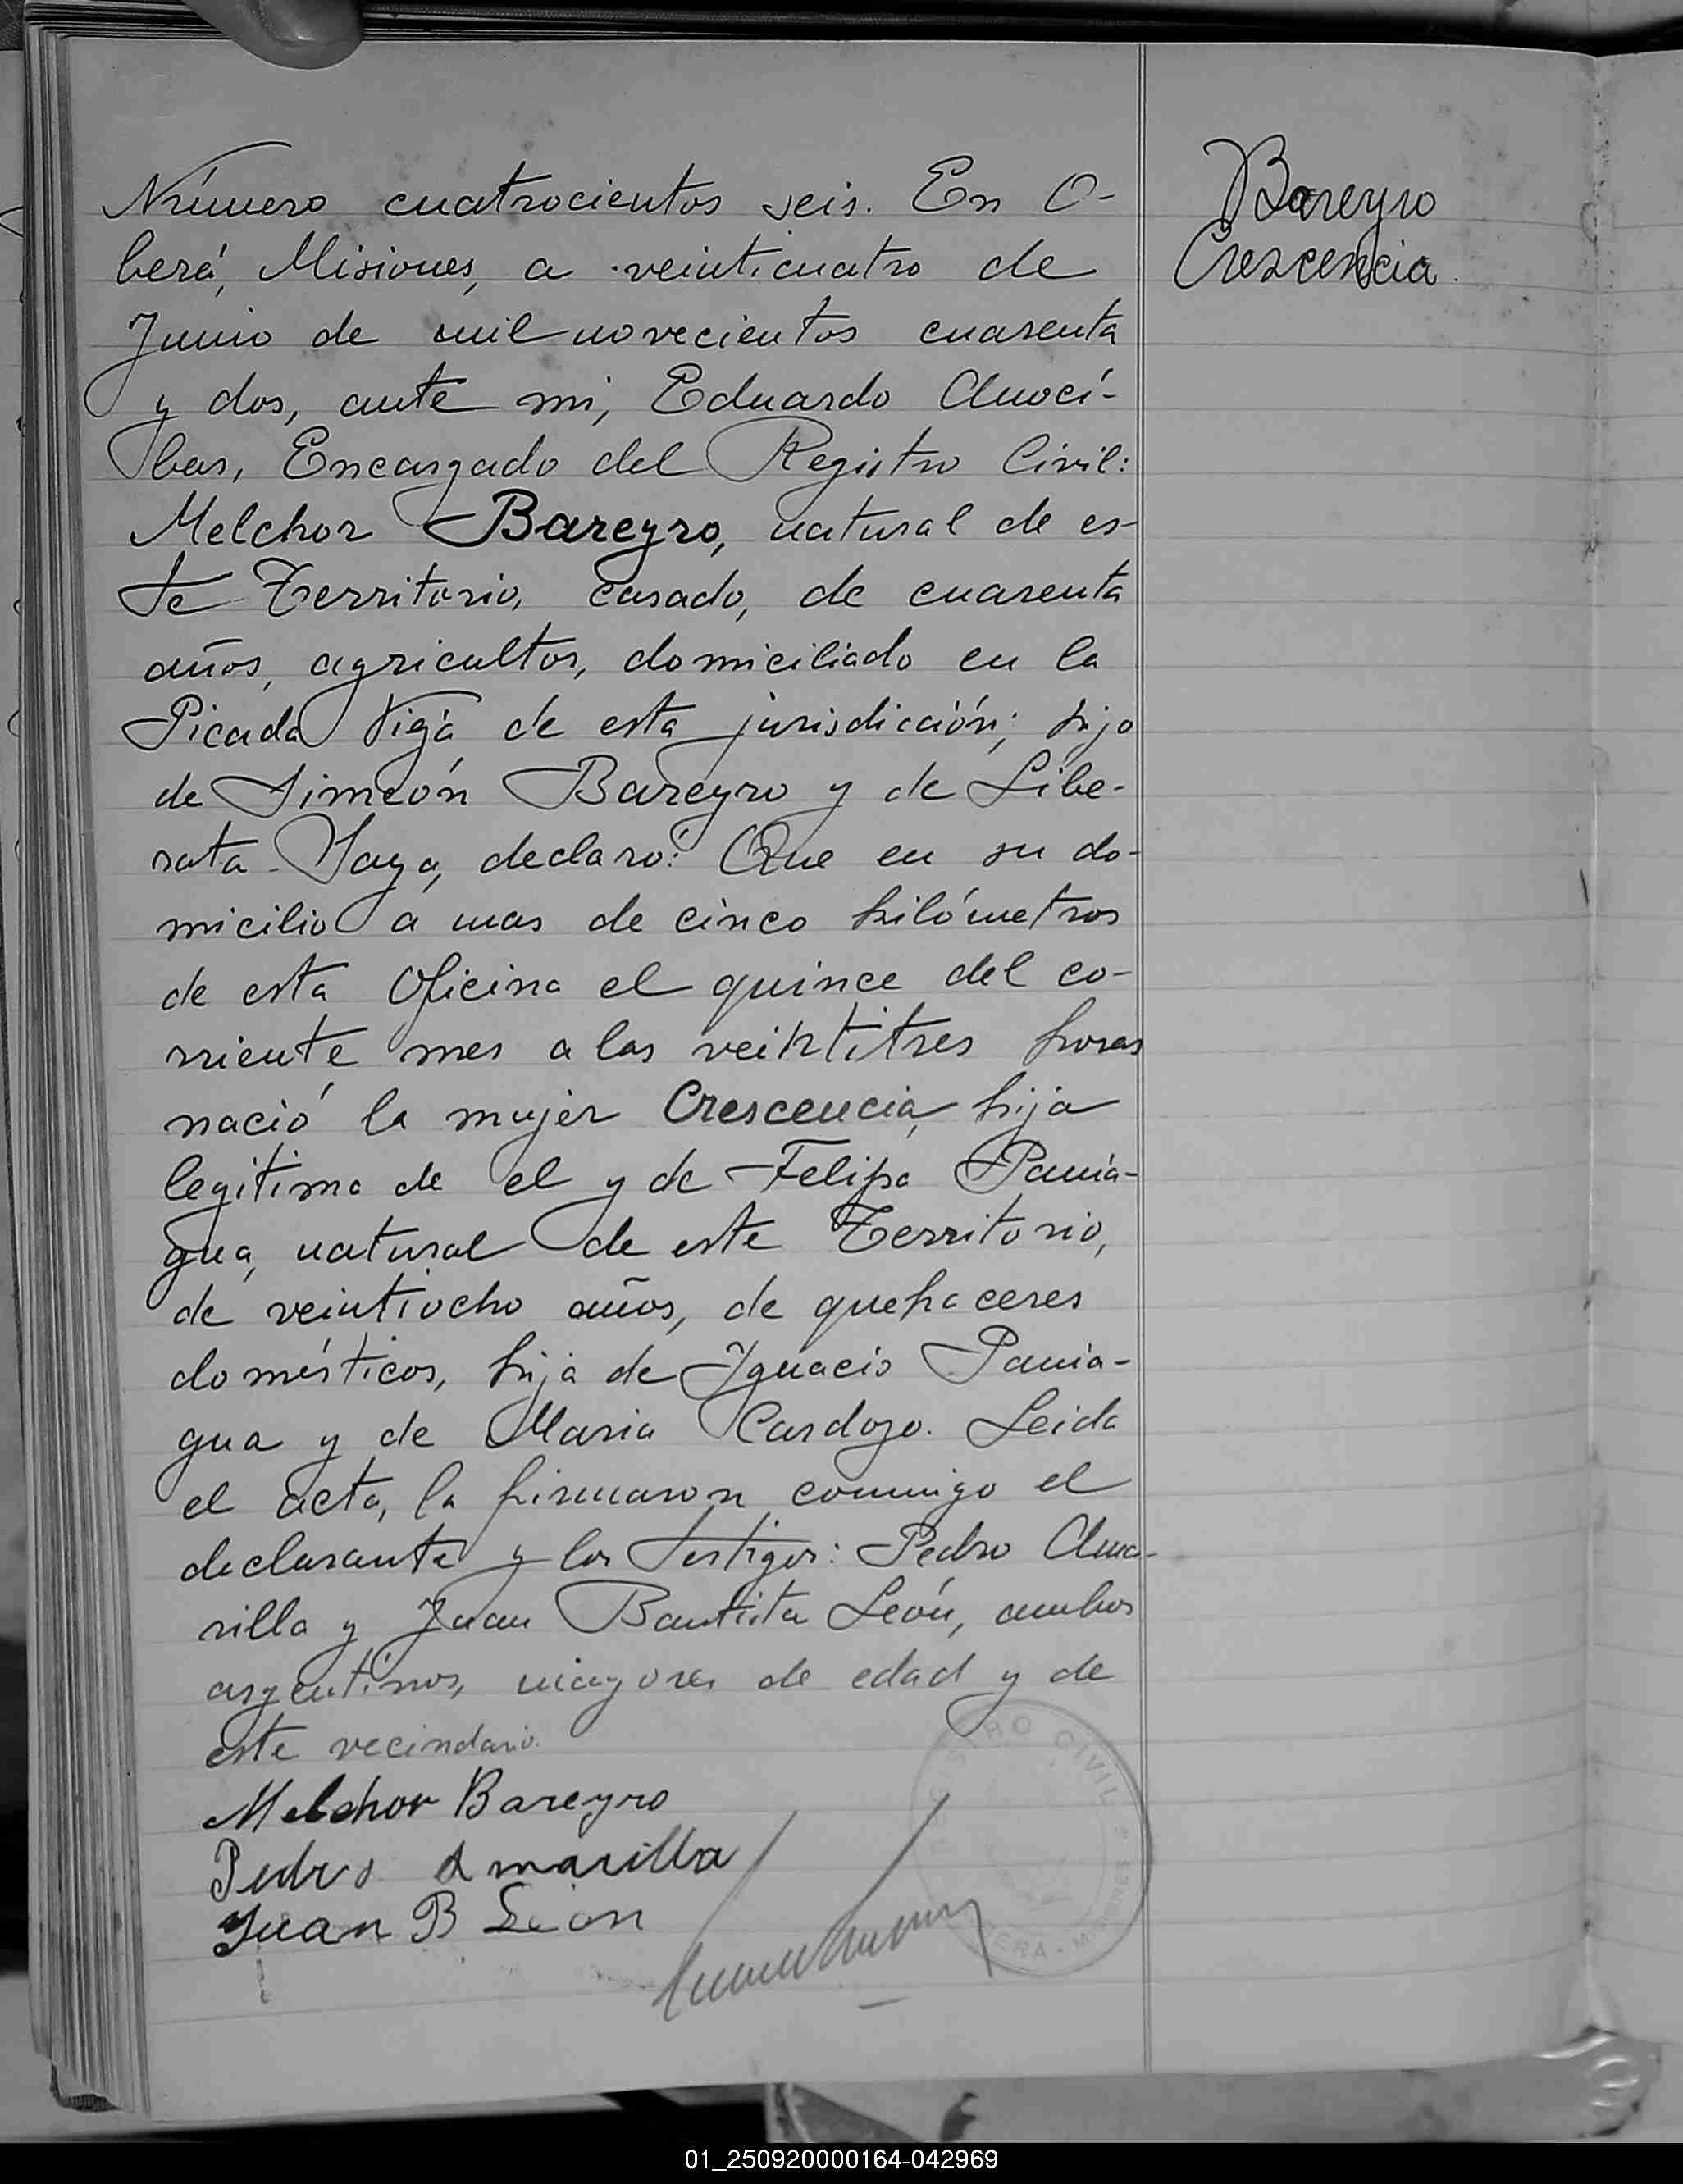 Número cuatrocientos seis. En O-
berá, Misiones, a veinticuatro de
Junio de mil novecientos cuarenta
y dos, ante mi, Eduardo Anocí-
bar, Encargado del Registro Civil:
Melchor Bareyro, natural de es-
te Territorio, casado, de cuarenta
años, agricultor, domiciliado en la
Picada de esta jurisdicción; hijo
de Simeón Bareyro y de Libe-
rata declaró: Que en su do-
micilio a mas de cinco kilómetros
de esta Oficina el quince del co-
rriente mes a las veintitres horas
nació la mujer Crescencia, hija
legitima de el y de Felipa Pania-
gua, natural de este Territorio,
de veintiocho años, de quehaceres
domésticos, hija de Ignacio Pania-
gua y de Maria Cardozo. Leida
el acta, la firmaron conmigo el
declarante y los testigos: Pedro Ama-
rilla y Juan Bautista León, ambos
argentinos, mayores de edad y de
este vecindario.
Melchor Bareyro
Pedro Amarilla
Juan B León
Bareyro
Crescencia.
REGISTRO CIVIL
OBERA - MISIONES
01_250920000164-042969